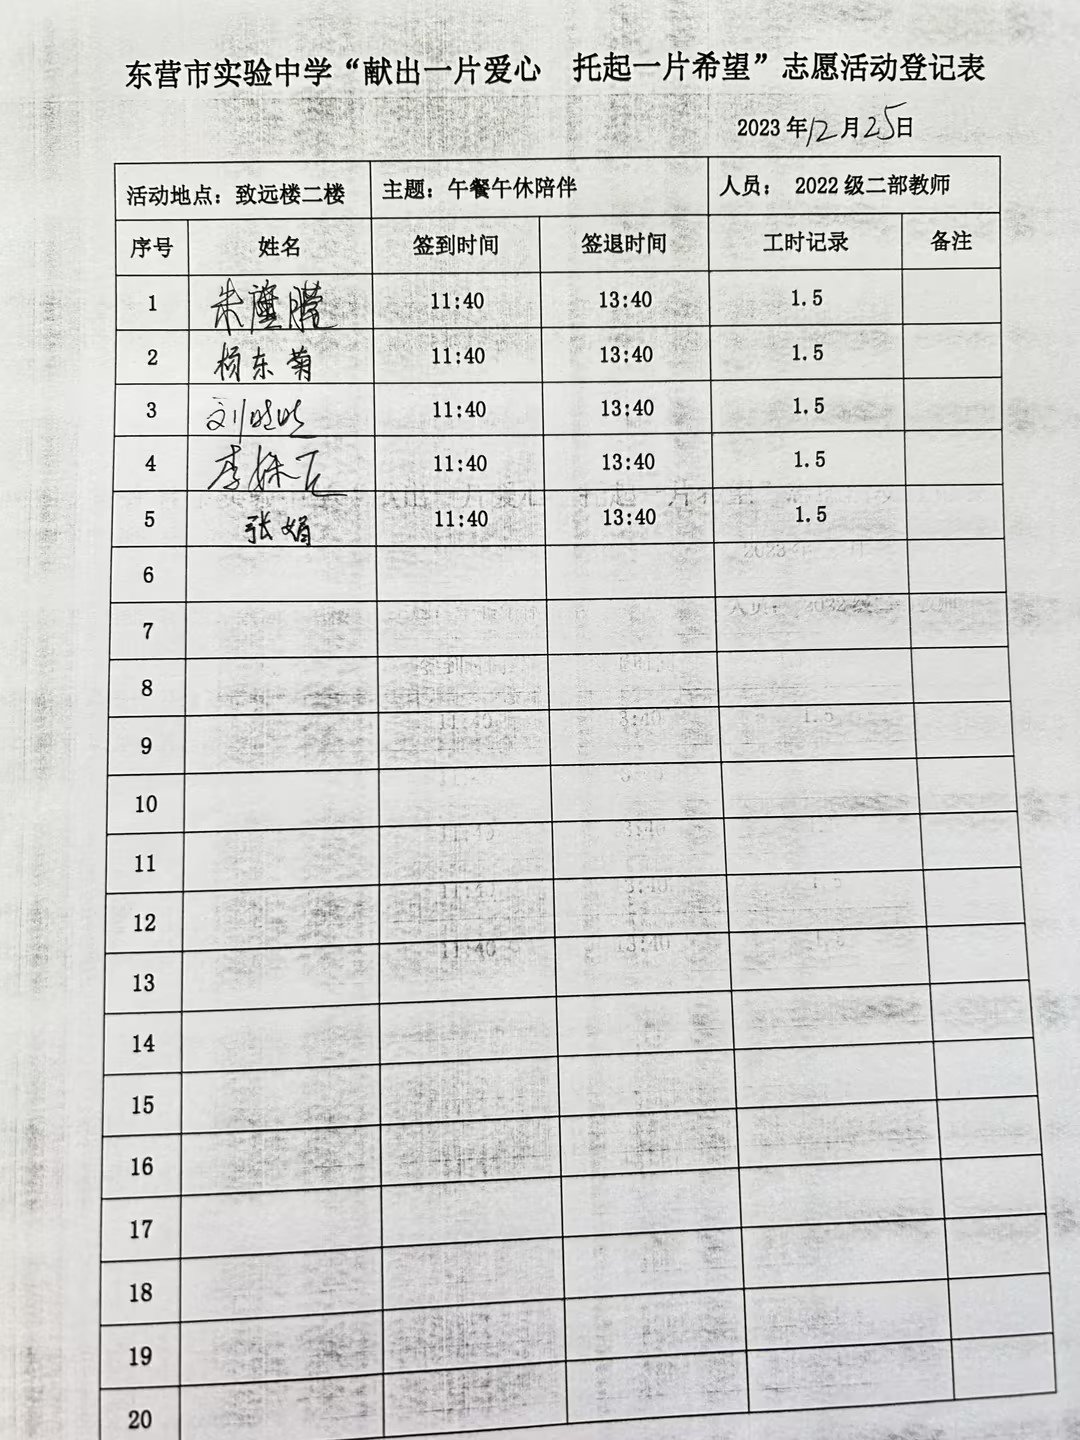 东营市实验中学“献出一片爱心 托起一片希望”志愿活动登记表
2023年12月25日
活动地点：致远楼二楼 主题：午餐午休陪伴 人员： 2022级二部教师
序号 姓名 签到时间 签退时间 工时记录 备注
1 朱 11:40 13:40 1.5
2 杨东菊 11:40 13:40 1.5
3 刘 11:40 13:40 1.5
4 李 11:40 13:40 1.5
5 张娟 11:40 13:40 1.5
6
7
8
9
10
11
12
13
14
15
16
17
18
19
20